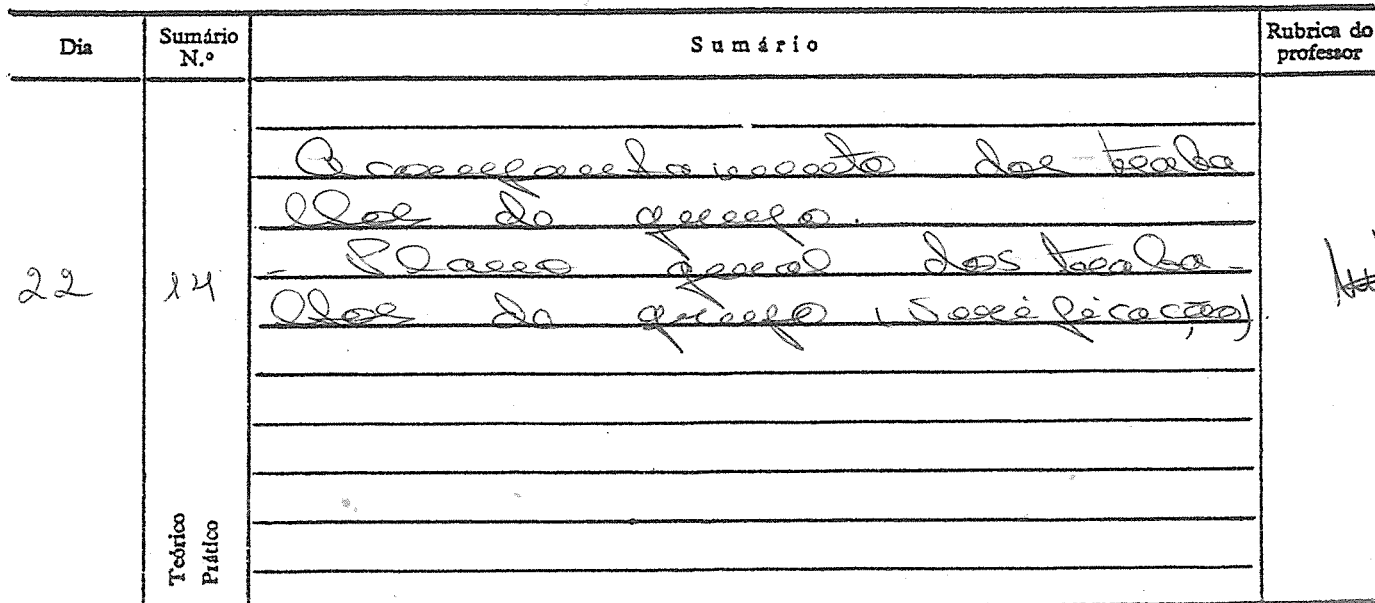 Dia
Sumário N.º
Sumário
Rubrica do professor
22
14
Acompanhamento dos traba
lhos do grupo.
- Plano geral dos traba-
lhos do grupo (verificação)
Teórico
Prático